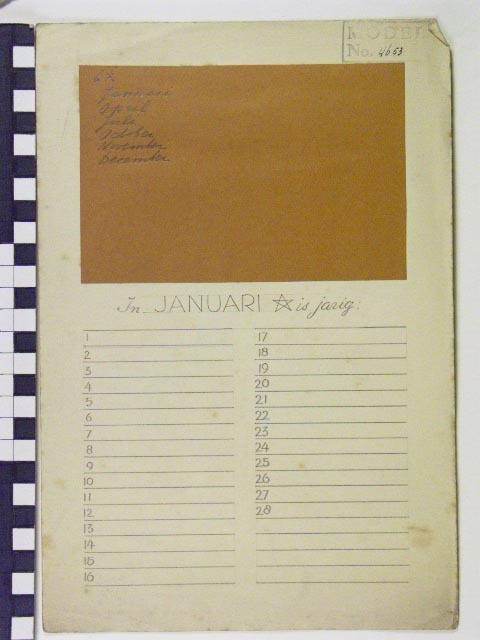 MODEL
No. 4653
6 x
Januari
April
Juli
October
November
December
In JANUARI is jarig:
1
2
3
4
5
6
7
8
9
10
11
12
13
14
15
16
17
18
19
20
21
22
23
24
25
26
27
28